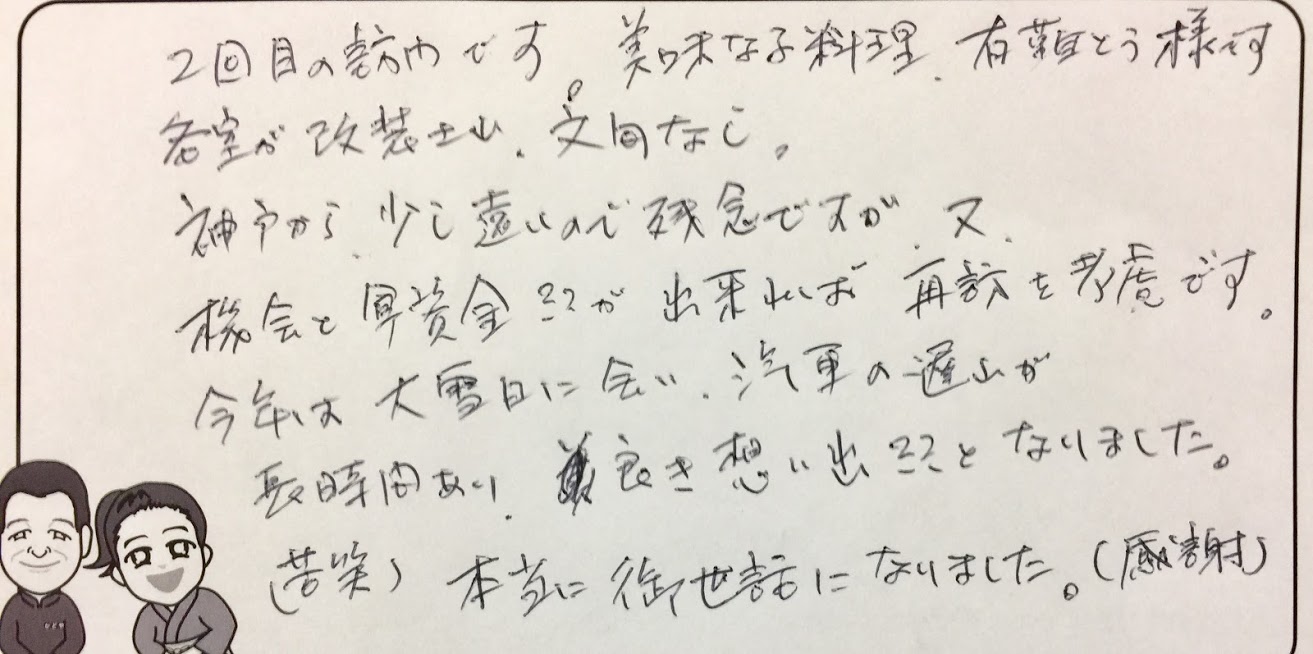 2回目の訪問です。美味な料理、有難とう様です
客室が改装され、文句なし。
神戸から、少し遠いので残念ですが、又、
機会と軍資金ミミが出来れば再訪を考慮です。
今年は大雪日に会い、汽車の遅れが
長時間あり、良き想い出ミミとなりました。
(苦笑)本当に御世話になりました。(感謝)